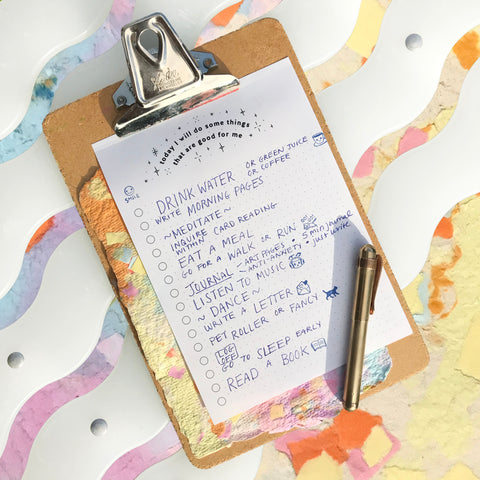 today I will do some things
that are good for me
SMILE
DRINK WATER OR GREEN JUICE
OR COFFEE
WRITE MORNING PAGES
~MEDITATE~
INQUIRE WITHIN CARD READING
EAT A MEAL
GO FOR A WALK OR RUN
JOURNAL - ART PAGES • 5 MIN JOURNAL
- ANTI-ANXIETY • JUST WRITE
LISTEN TO MUSIC
~ DANCE ~
WRITE A LETTER
PET ROLLER OR FANCY
LOG OFF
GO TO SLEEP EARLY
READ A BOOK